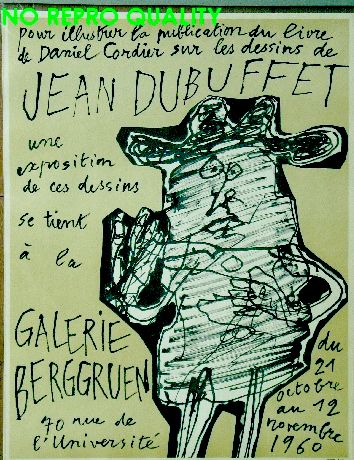 NO REPRO QUALITY
pour illustrer la publication du livre
de Daniel Cordier sur les dessins de
JEAN DUBUFFET
une
exposition
de ces dessins
se tient
à la
GALERIE
BERGGRUEN
70 rue de
l'Université
du
21
octobre
au 12
novembre
1960